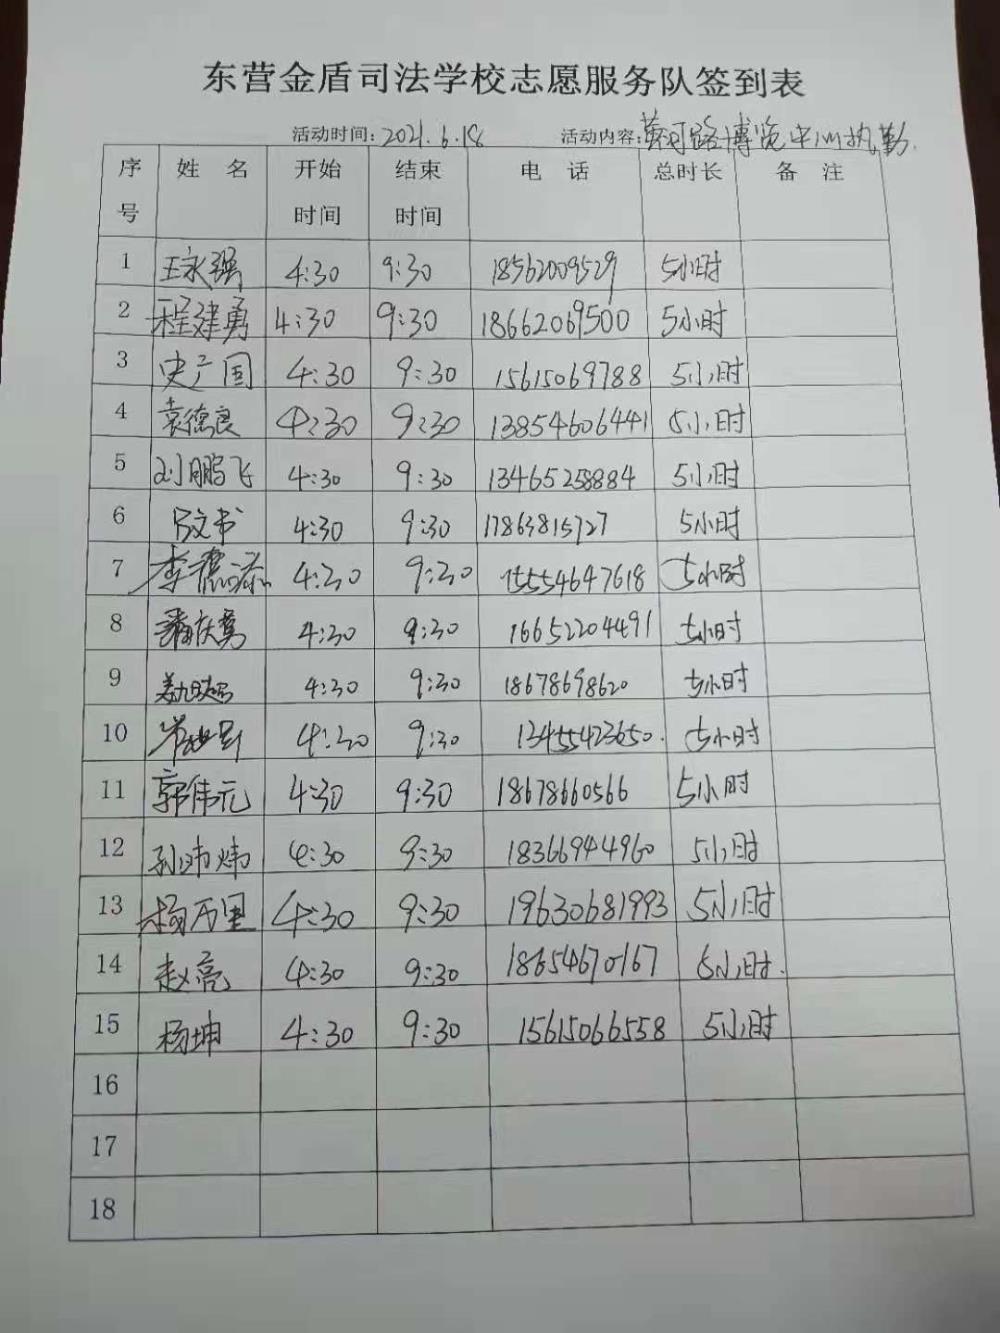 东营金盾司法学校志愿服务队签到表
活动时间：2021.6.18 活动内容：黄河路博览中心执勤.
序号 姓名 开始时间 结束时间 电话 总时长 备注
1 王永强 4:30 9:30 18562009529 5小时
2 程建勇 4:30 9:30 18662069500 5小时
3 史广国 4:30 9:30 15615069788 5小时
4 袁德良 4:30 9:30 13854606441 5小时
5 刘鹏飞 4:30 9:30 13465258884 5小时
6 4:30 9:30 17863815727 5小时
7 李德添 4:30 9:30 15554647618 5小时
8 4:30 9:30 16652204491 5小时
9 4:30 9:30 18678698620 5小时
10 4:30 9:30 13455423650. 5小时
11 郭伟元 4:30 9:30 18678660566 5小时
12 孙玮炜 4:30 9:30 18366944960 5小时
13 杨万里 4:30 9:30 19630681993 5小时
14 赵亮 4:30 9:30 18654670167 5小时.
15 杨坤 4:30 9:30 15615066558 5小时
16
17
18